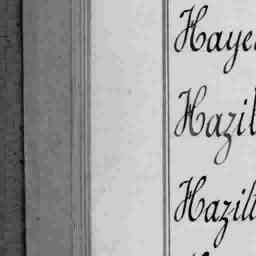 Haye
Hazil
Hazilt